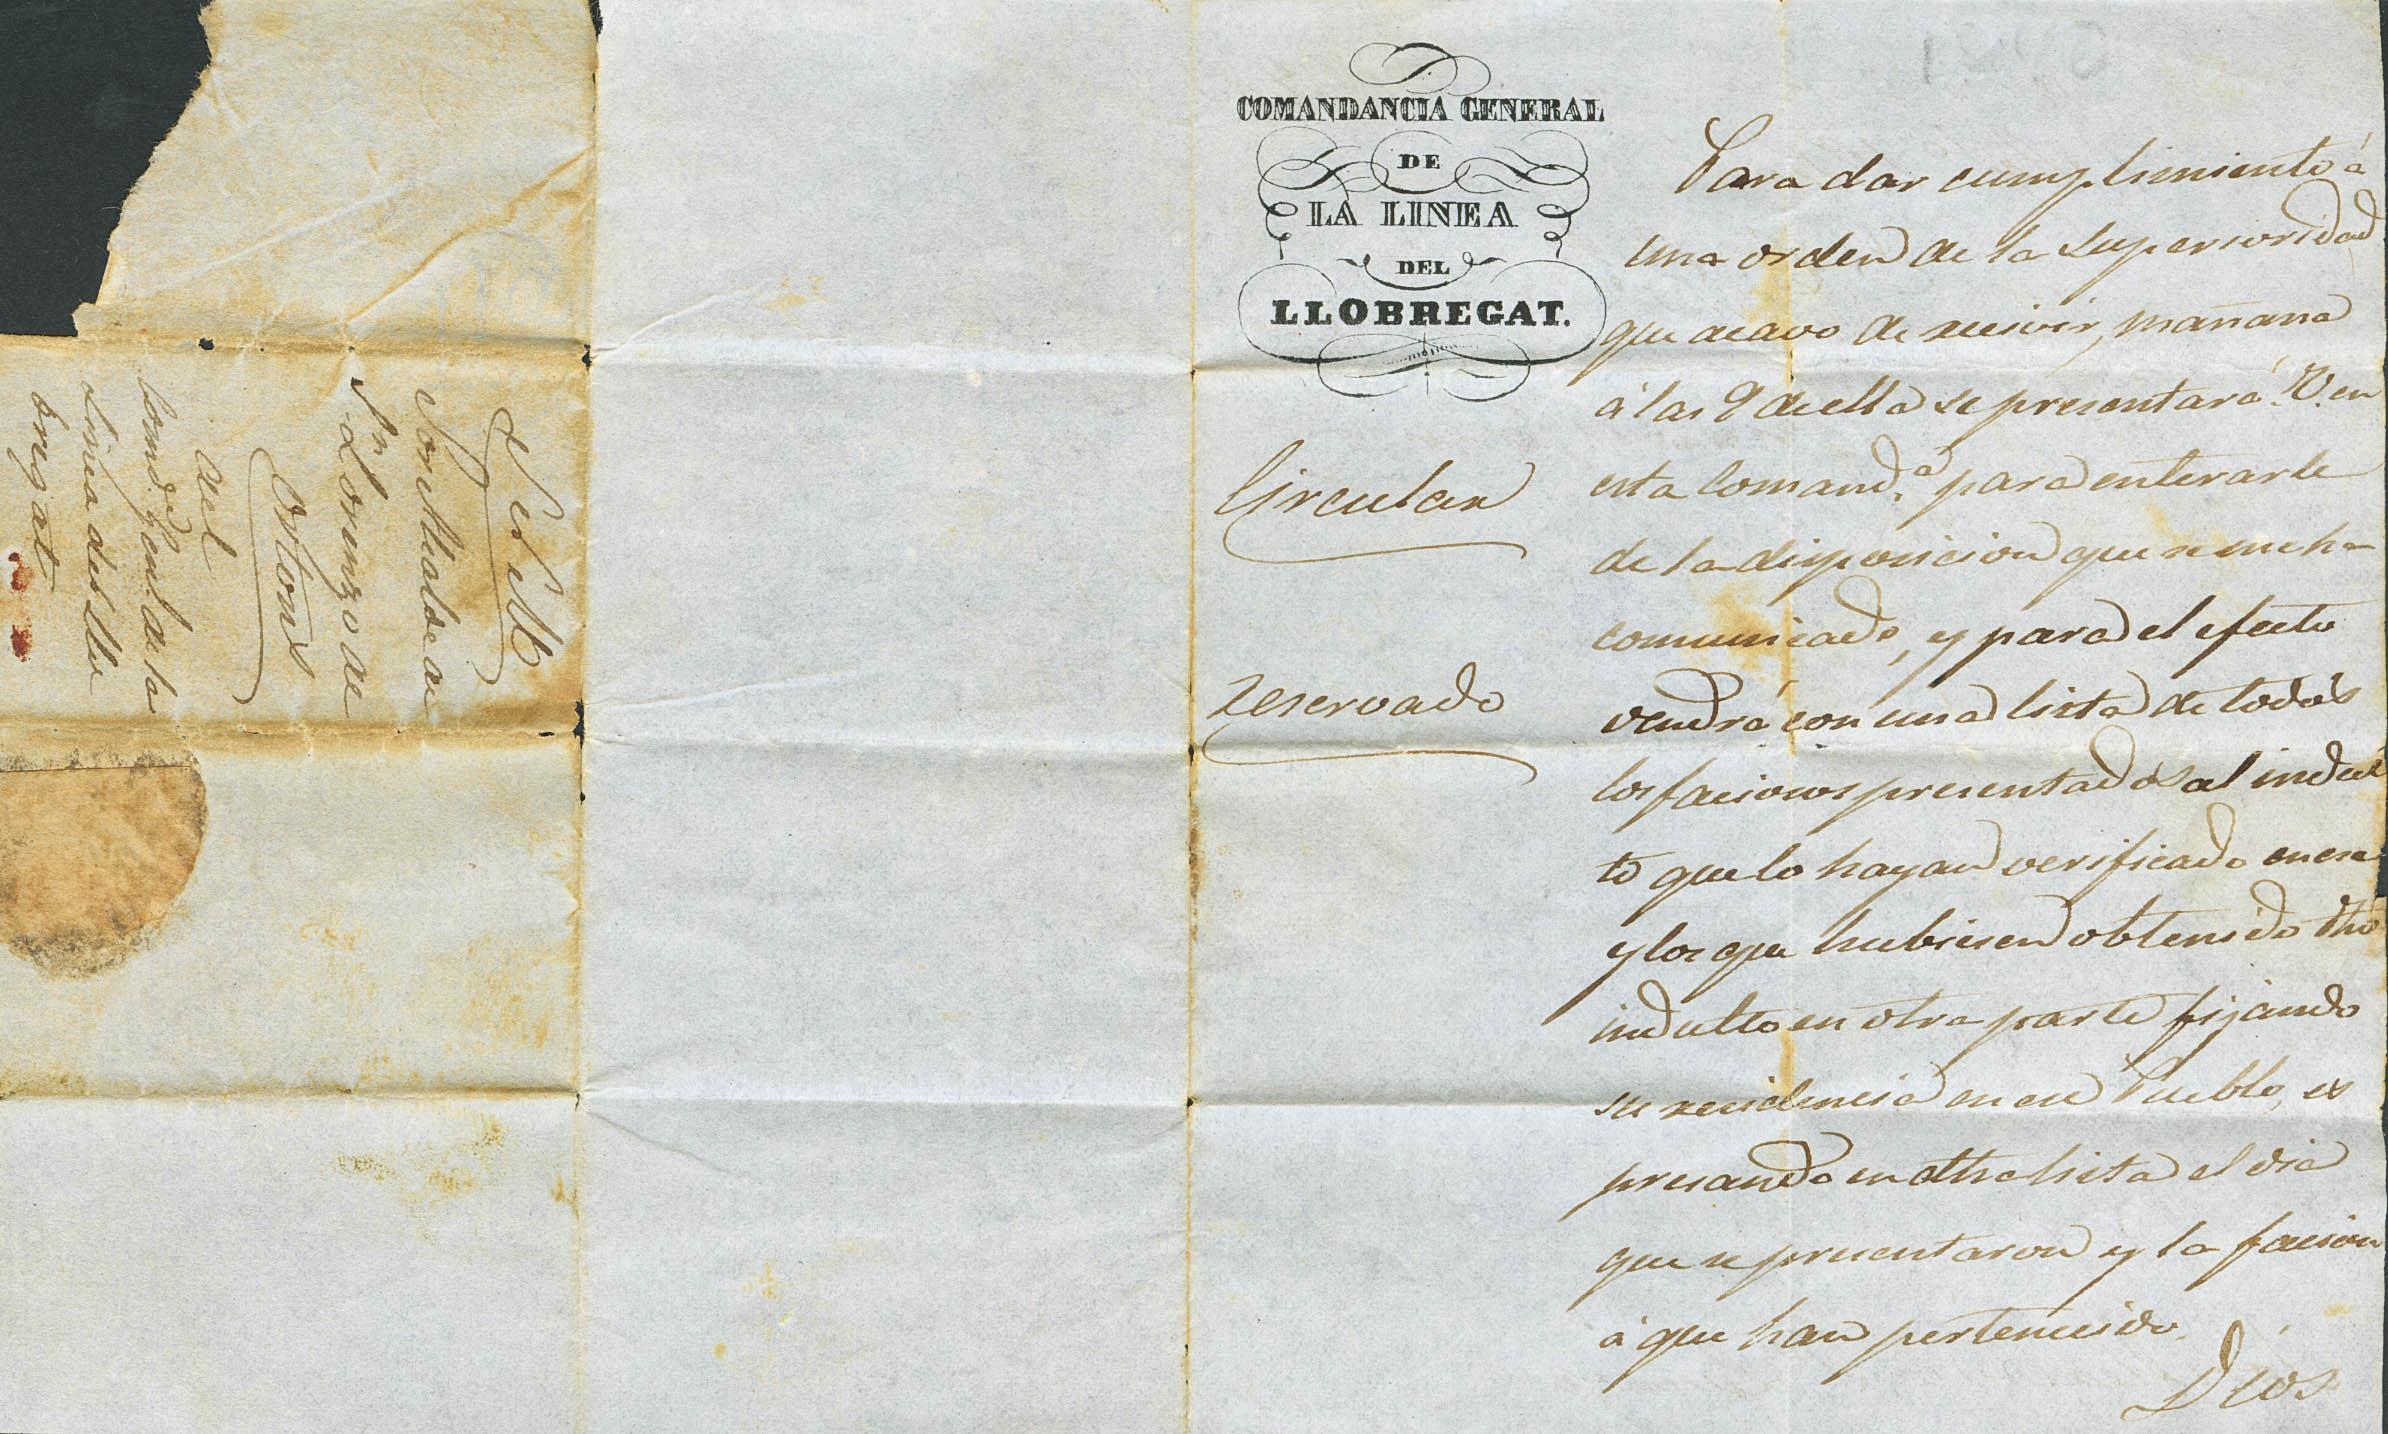 COMANDANCIA GENERAL
DE
LA LINEA
DEL
LLOBREGAT.
Circular
reservado
Para dar cumplimiento á
una orden de la superioridad
que acavo de recivir, mañana
á las 9 de ella se presentará V. en
esta Comand.ª para enterarle
de la disposicion que se me ha
comunicado, y para el efecto
vendrá con una lista de todos
los faciosos presentados al indul
to que lo hayan verificado en esa
y los que hubiesen obtenido dho
indulto en otra parte fijando
su recidencia en ese Pueblo, es
presando en dha lista el dia
que se presentaron y la facion
á que han pertenecido.
Dios
S. N.
Sor. Alcalde de
Sn. Lorenzo de
Ortons
del
Comd. Genl. de la
Linea del Llo
bregat